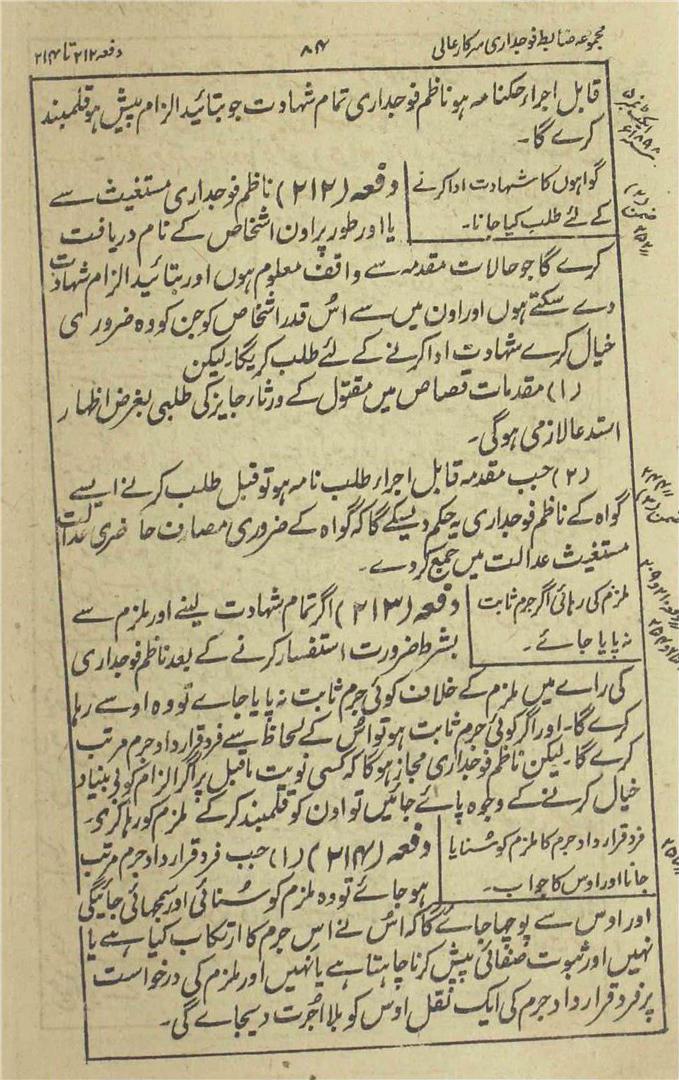 مجموعہ ضابطہ فوجداری سرکار عالی
۸۴
دفعہ ۲۱۲ تا ۲۱۴
قابل اجراء حکمنامہ ہو ناظم فوجداری تمام شہادت جو بتائید الزام پیش ہو قلمبند
کرے گا۔
گواہوں کا شہادت ادا کرنے
کے لئے طلب کیا جانا۔
دفعہ (۲۱۲) ناظم فوجداری مستغیث سے
یا اور طور پر اون اشخاص کے نام دریافت
کرے گا جو حالات مقدمہ سے واقف معلوم ہوں اور بتائید الزام شہادت
دے سکتے ہوں اور اون میں سے اُس قدر اشخاص کو جن کو وہ ضروری
خیال کرے شہادت ادا کرنے کے لئے طلب کریگا۔ لیکن
(۱) مقدمات قصاص میں مقتول کے ورثاء جایز کی طلبی بغرض اظہار
استدعا لازمی ہوگی۔
(۲) جب مقدمہ قابل اجراء طلب نامہ ہو تو قبل طلب کرنے ایسے
گواہ کے ناظم فوجداری یہ حکم دیسکے گا کہ گواہ کے ضروری مصارف حاضری عدالت
مستغیث عدالت میں جمع کردے۔
ملزم کی رہائی اگر جرم ثابت
نہ پایا جائے۔
دفعہ (۲۱۳) اگر تمام شہادت لینے اور ملزم سے
بشرط ضرورت استفسار کرنے کے بعد ناظم فوجداری
کی راے میں ملزم کے خلاف کوئی جرم ثابت نہ پایا جاے تو وہ اوسے رہا
کرے گا۔ اور اگر کوئی جرم ثابت ہو تو اُس کے لحاظ سے فرد قرارداد جرم مرتب
کرے گا۔ لیکن ناظم فوجداری مجاز ہوگا کہ کسی نوبت ماقبل پر اگر الزام کو بے بنیاد
خیال کرنے کے وجوہ پائے جائیں تو اون کو قلمبند کرکے ملزم کو رہا کردے۔
فرد قرارداد جرم کا ملزم کو سُنایا
جانا اور اوس کا جواب۔
دفعہ (۲۱۴) (۱) جب فرد قرارداد جرم مرتب
ہو جائے تو وہ ملزم کو سُنائی اور سمجھائی جائیگی
اور اوس سے پوچھا جائے گا کہ اُس نے اس جرم کا ارتکاب کیا ہے یا
نہیں اور ثبوت صفائی پیش کرنا چاہتا ہے یا نہیں اور ملزم کی درخواست
پر فرد قرارداد جرم کی ایک نقل اوس کو بلا اُجرت دیجاے گی۔